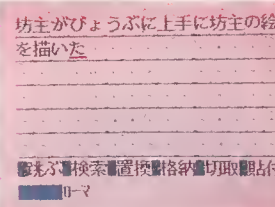 坊主がびょうぶに上手に坊主の絵
を描いた
選ぶ 検索 置換 格納 切取 貼付
ローマ